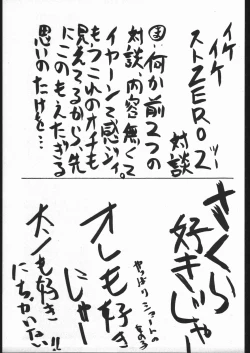 イケイケ
ストZERO2ッ
対談
何か前2つの
対談、内容無くて
イヤーンて感ジィ。
もうこれのオチも
見えてるから、先
にこのもえたぎる
思いのたけを…
さくら
好きじゃー
オレも好き
にじゃー
やっぱりショートの
大ノも好き
にちがいない!!